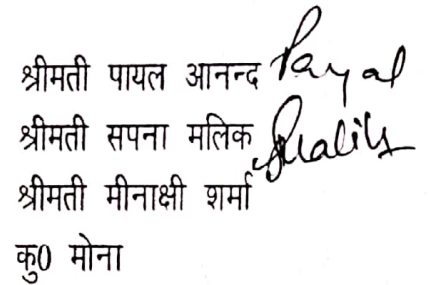 श्रीमती पायल आनन्द Payal
श्रीमती सपना मलिक Smalik
श्रीमती मीनाक्षी शर्मा
कु0 मोना